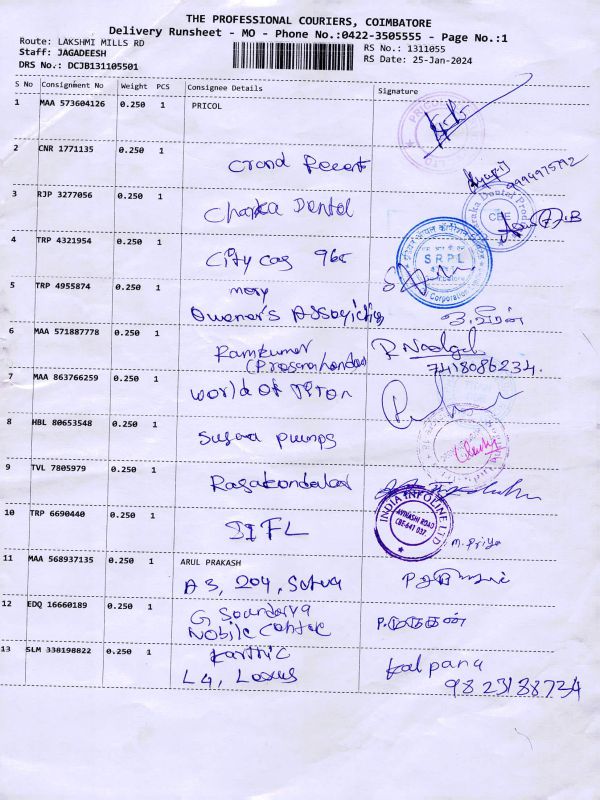 THE PROFESSIONAL COURIERS, COIMBATORE
Delivery Runsheet - MO - Phone No.:0422-3505555 - Page No.:1
Route: LAKSHMI MILLS RD
Staff: JAGADEESH
DRS No.: DCJB131105501
RS No.: 1311055
RS Date: 25-Jan-2024
S No Consignment No Weight PCS Consignee Details Signature
1 MAA 573604126 0.250 1 PRICOL
2 CNR 1771135 0.250 1
Grand Regent
9994975792
3 RJP 3277056 0.250 1
Charka Dental
CBE
4 TRP 4321954 0.250 1
City cag
SRPL
Corporation
5 TRP 4955874 0.250 1
Owener's
6 MAA 571887778 0.250 1
Ramkumar
7418086234.
7 MAA 863766259 0.250 1
World of Titan
8 HBL 80653548 0.250 1
pumps
9 TVL 7805979 0.250 1
10 TRP 6690440 0.250 1
IIFL
INDIA INFOLINE LTD
AVINASHI ROAD
CBE-641 037
M. Priya
11 MAA 568937135 0.250 1 ARUL PRAKASH
A3, 204,
12 EDQ 16660189 0.250 1
G Soundarya
Mobile Centre
P. முருகன்
13 SLM 338198822 0.250 1
Karthic
L4, Lexus
Kalpana
9823188734